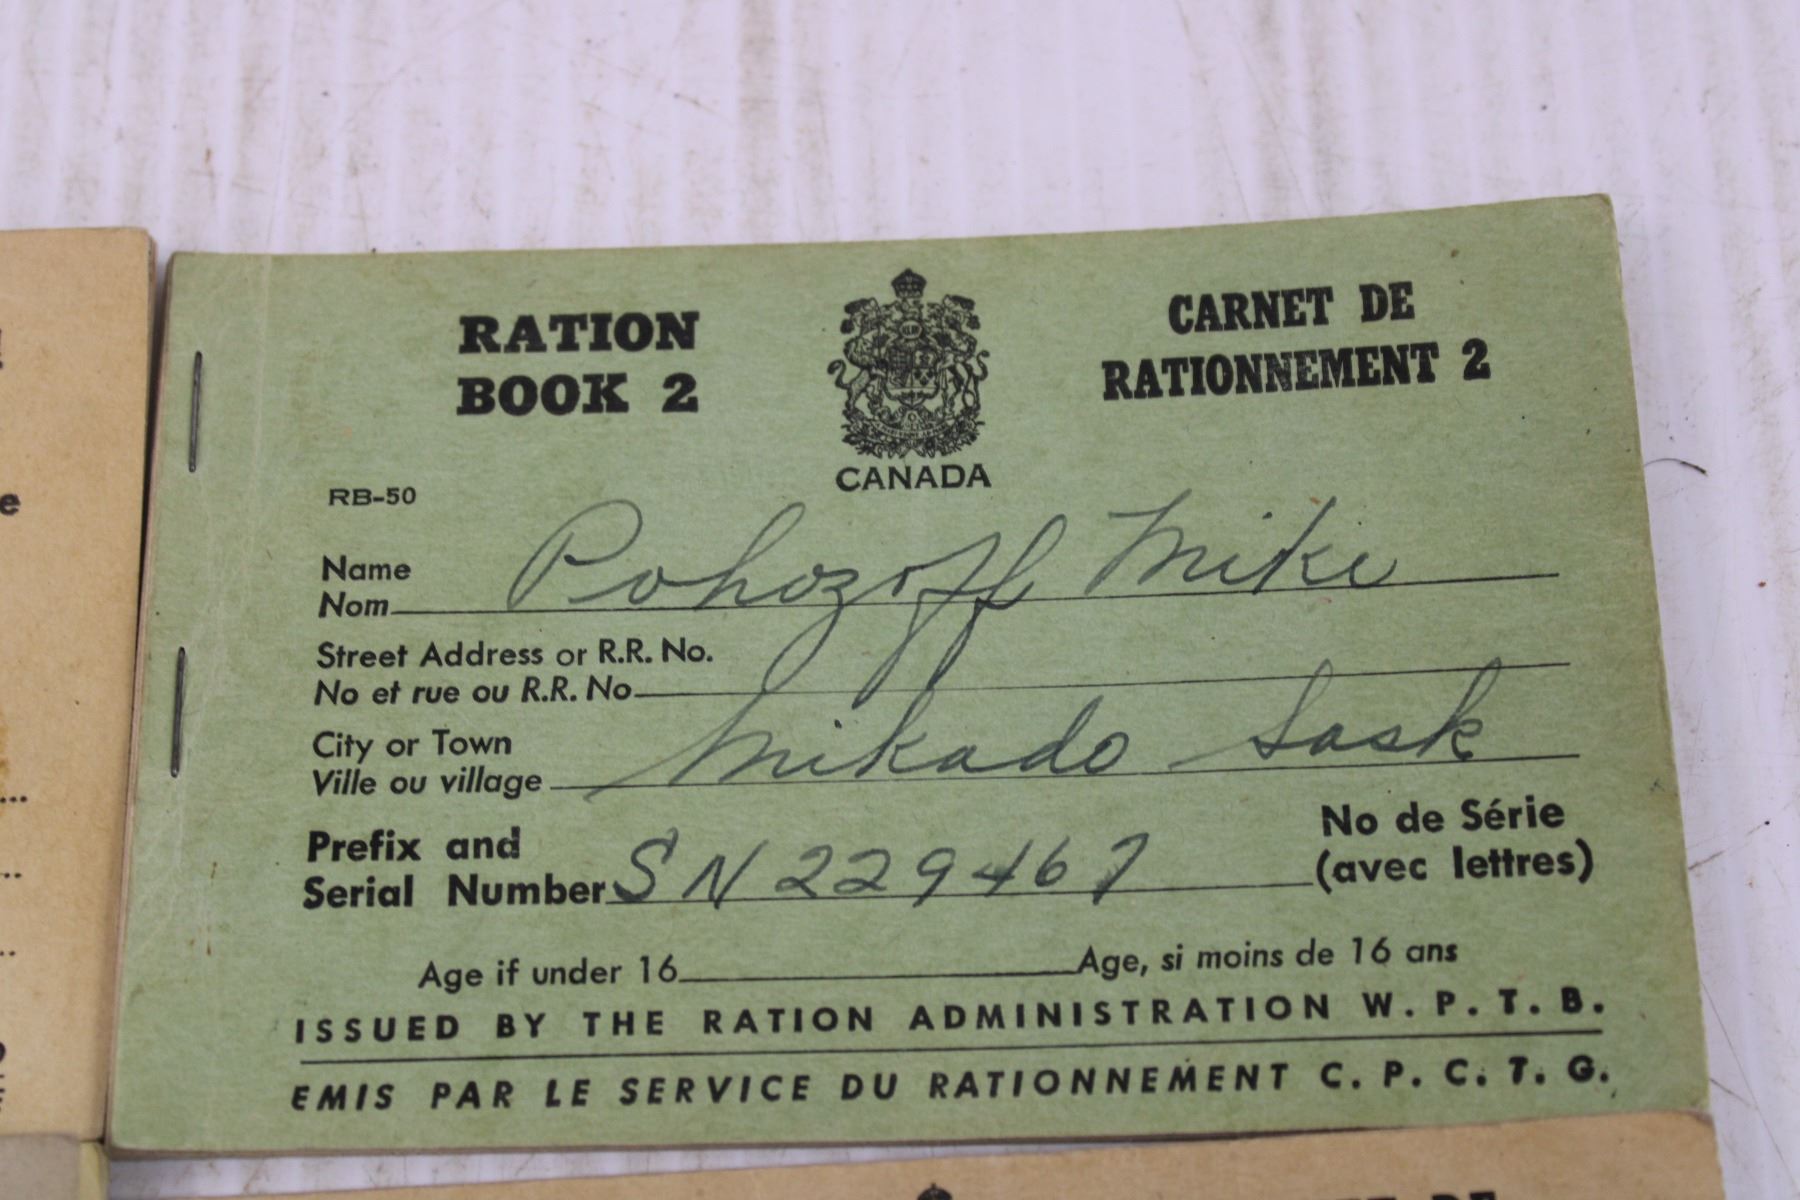 RATION
BOOK 2
CANADA
CARNET DE
RATIONNEMENT 2
RB-50
Name Pohozoff Mike
Nom
Street Address or R.R. No.
No et rue ou R.R. No
City or Town Mikado Sask
Ville ou village
Prefix and
Serial Number SN 229467
No de Série
(avec lettres)
Age if under 16 Age, si moins de 16 ans
ISSUED BY THE RATION ADMINISTRATION W. P. T. B.
EMIS PAR LE SERVICE DU RATIONNEMENT C. P. C. T. G.